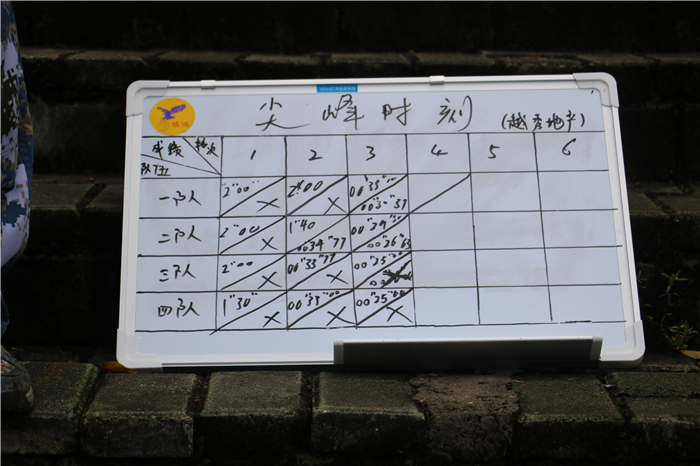 尖峰时刻 (越秀地产)
成绩 轮次 队伍 1 2 3 4 5 6
一队 2"00 × 2"00 × 00"35"
二队 2"00 × 1"40 0034"77 00"29" 00"26"63
三队 2"00 × 00"33"77 × 00"25"
四队 1"30" × 00"33"00 × 00"25" ×